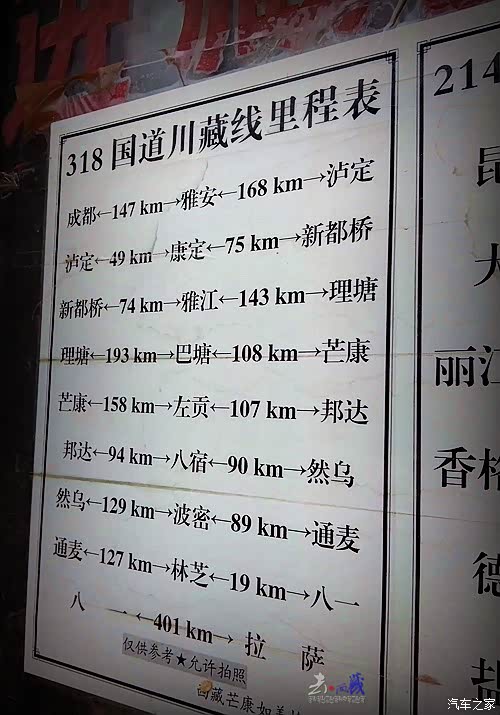 318 国道川藏线里程表
成都←147 km→雅安←168 km→泸定
泸定←49 km→康定←75 km→新都桥
新都桥←74 km→雅江←143 km→理塘
理塘←193 km→巴塘←108 km→芒康
芒康←158 km→左贡←107 km→邦达
邦达←94 km→八宿←90 km→然乌
然乌←129 km→波密←89 km→通麦
通麦←127 km→林芝←19 km→八一
八 一←401 km→ 拉 萨
仅供参考★允许拍照
西藏芒康如美
214
丽江
香格
德
盐
去西藏
汽车之家